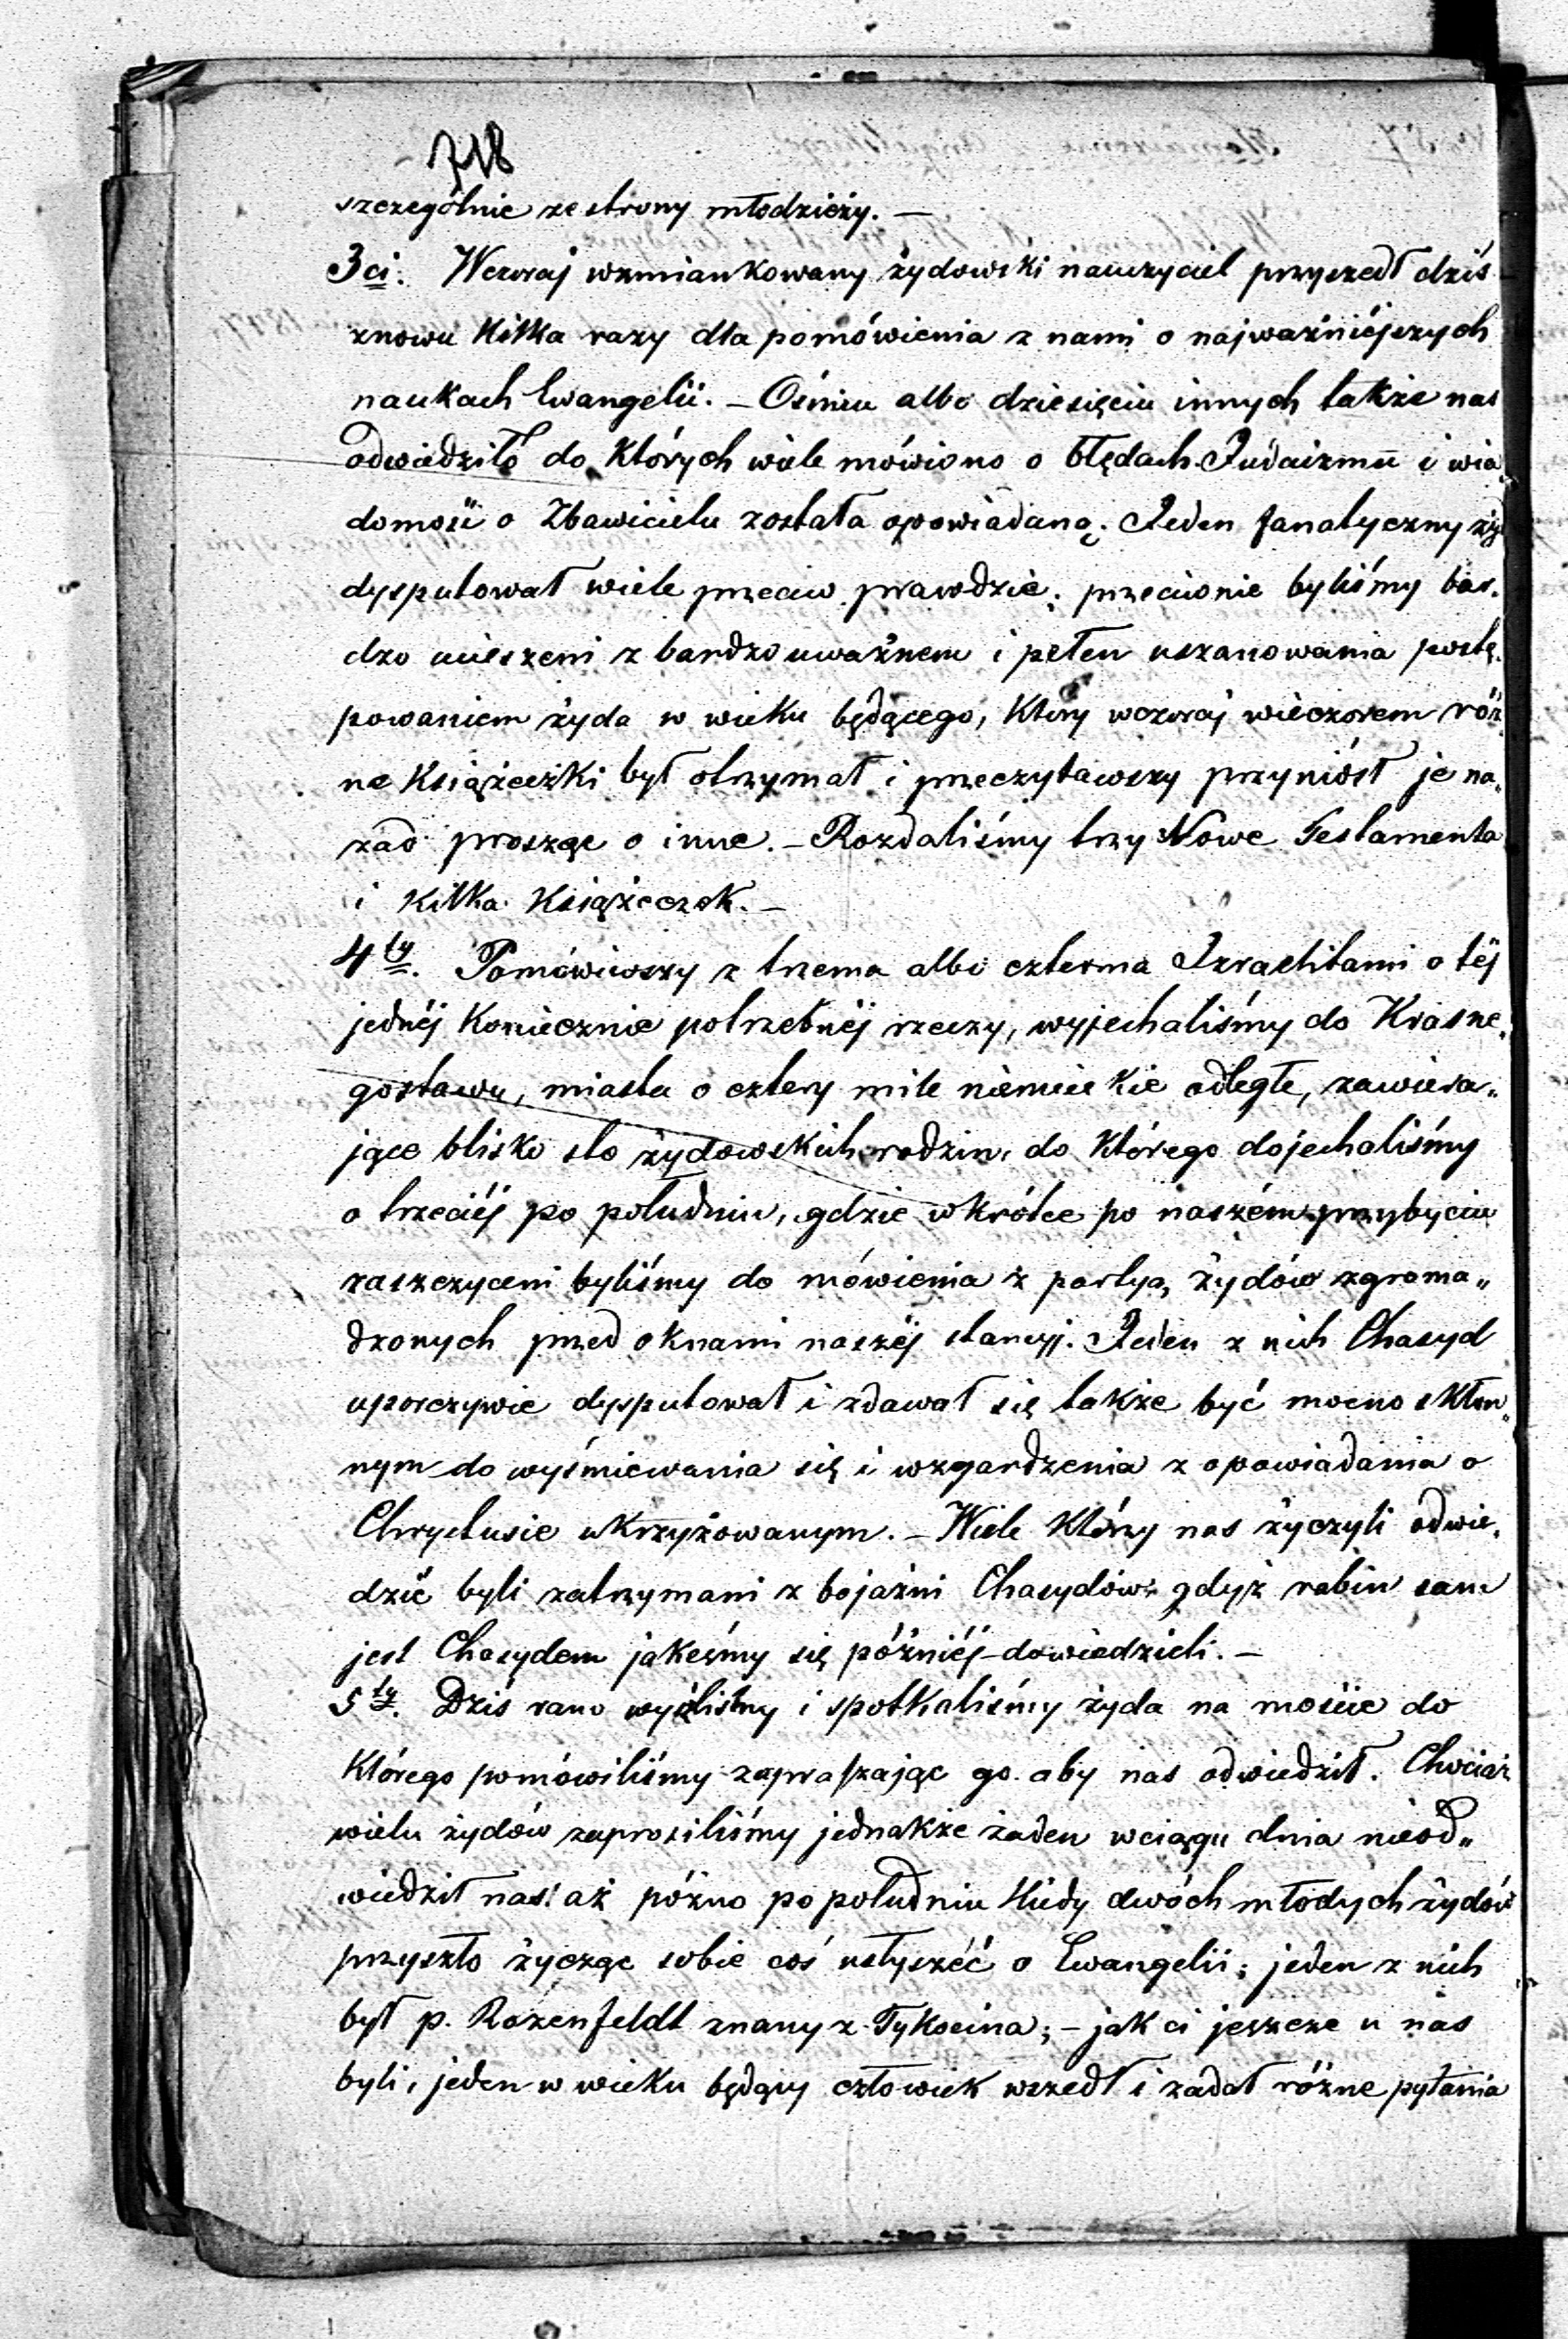 718
szczególnie ze strony młodzieży. —
3ci. Wczoraj wzmiankowany żydowski nauczyciel przyszedł dziś
znowu kilka razy dla pomówienia z nami o najważniéjszych
naukach Ewangelii. — Ośmiu albo dziesięciu innych także nas
odwiedziło do których wiele mówiono o błędach Judaizmu i wia„
domość o Zbawicielu została opowiadaną; Jeden fanatyczny żyd
dysputował wiele przeciw prawdzie; przeciwnie byliśmy bar„
dzo ucieszeni z bardzo uważnem i pełen uszanowania postę„
powaniem żyda w wieku będącego, który wczoraj wieczorem róż„
ne książeczki był otrzymał i przeczytawszy przyniósł je na„
zad prosząc o inne. — Rozdaliśmy trzy Nowe Testamenta
i kilka książeczek. —
4ty. Pomówiwszy z trzema albo czterma Izraelitami o téj
jednéj koniecznie potrzebnéj rzeczy, wyjechaliśmy do Krasne„
gostawu, miasta o cztery mile niemieckie odległe, zawiera„
jące blisko sto żydowskich rodzin, do którego dojechaliśmy
o trzeciéj po południu, gdzie wkrótce po naszém przybyciu
zaszczyceni byliśmy do mówienia z partyą żydów zgroma„
dzonych przed oknami naszéj stancyj. Jeden z nich Chasyd
uporczywie dysputował i zdawał się także być mocno skłon„
nym do wyśmiewania się i wzgardzenia z opowiadania o
Chrystusie ukrzyżowanym. — Wiele którzy nas życzyli odwie„
dzić byli zatrzymani z bojaźni Chasydów, gdyż rabin sam
jest Chasydem jakeśmy się późniéj dowiedzieli. —
5ty. Dziś rano wyśliśmy i spotkaliśmy żyda na moście do
którego pomówiliśmy zapraszając go aby nas odwiedził. Chociaż
wielu żydów zaprosiliśmy jednakże żaden wciągu dnia nieod„
wiedził nas aż późno po południu kiedy dwóch młodych żydów
przyszło życząc sobie coś usłyszéć o Ewangelii; jeden z nich
był p. Rozenfeldt znany z Tykocina; — jak ci jeszcze u nas
byli, jeden w wieku będący człowiek wszedł i zadał różne pytania